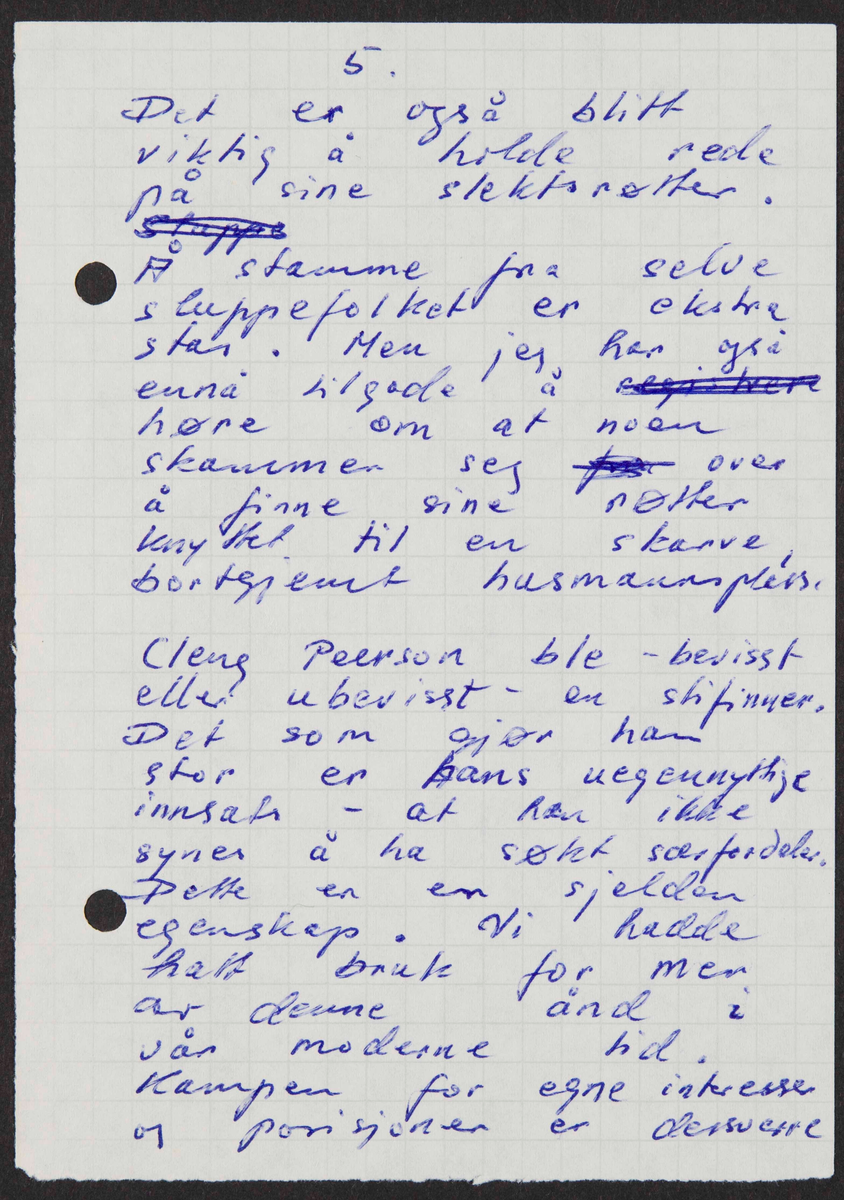 5.
Det er også blitt
viktig å holde rede
på sine slektsrøtter.
sluppe
Å stamme fra selve
sluppefolket er ekstra
stas. Men jeg har også
ennå tilgode å registrere
høre om at noen
skammer seg over
å finne sine røtter
knyttet til en skarve,
bortgjemt husmannsplass.
Cleng Peerson ble - bevisst
eller ubevisst - en stifinner.
Det som gjør han
stor er hans uegennyttige
innsats - at han ikke
synes å ha søkt særfordeler.
Dette er en sjelden
egenskap. Vi hadde
hatt bruk for mer
av denne ånd i
vår moderne tid.
Kampen for egne interesser
og posisjoner er dessverre